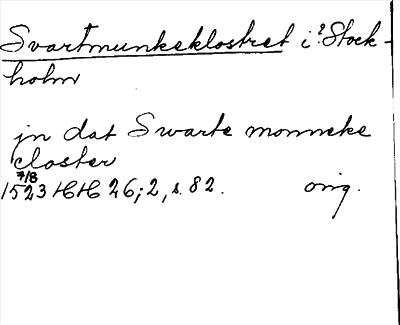 Svartmunkeklostret i? Stock-
holm
in dat Swarte monneke
closter
7/8
1523 HH 26; 2, s. 82. orig.